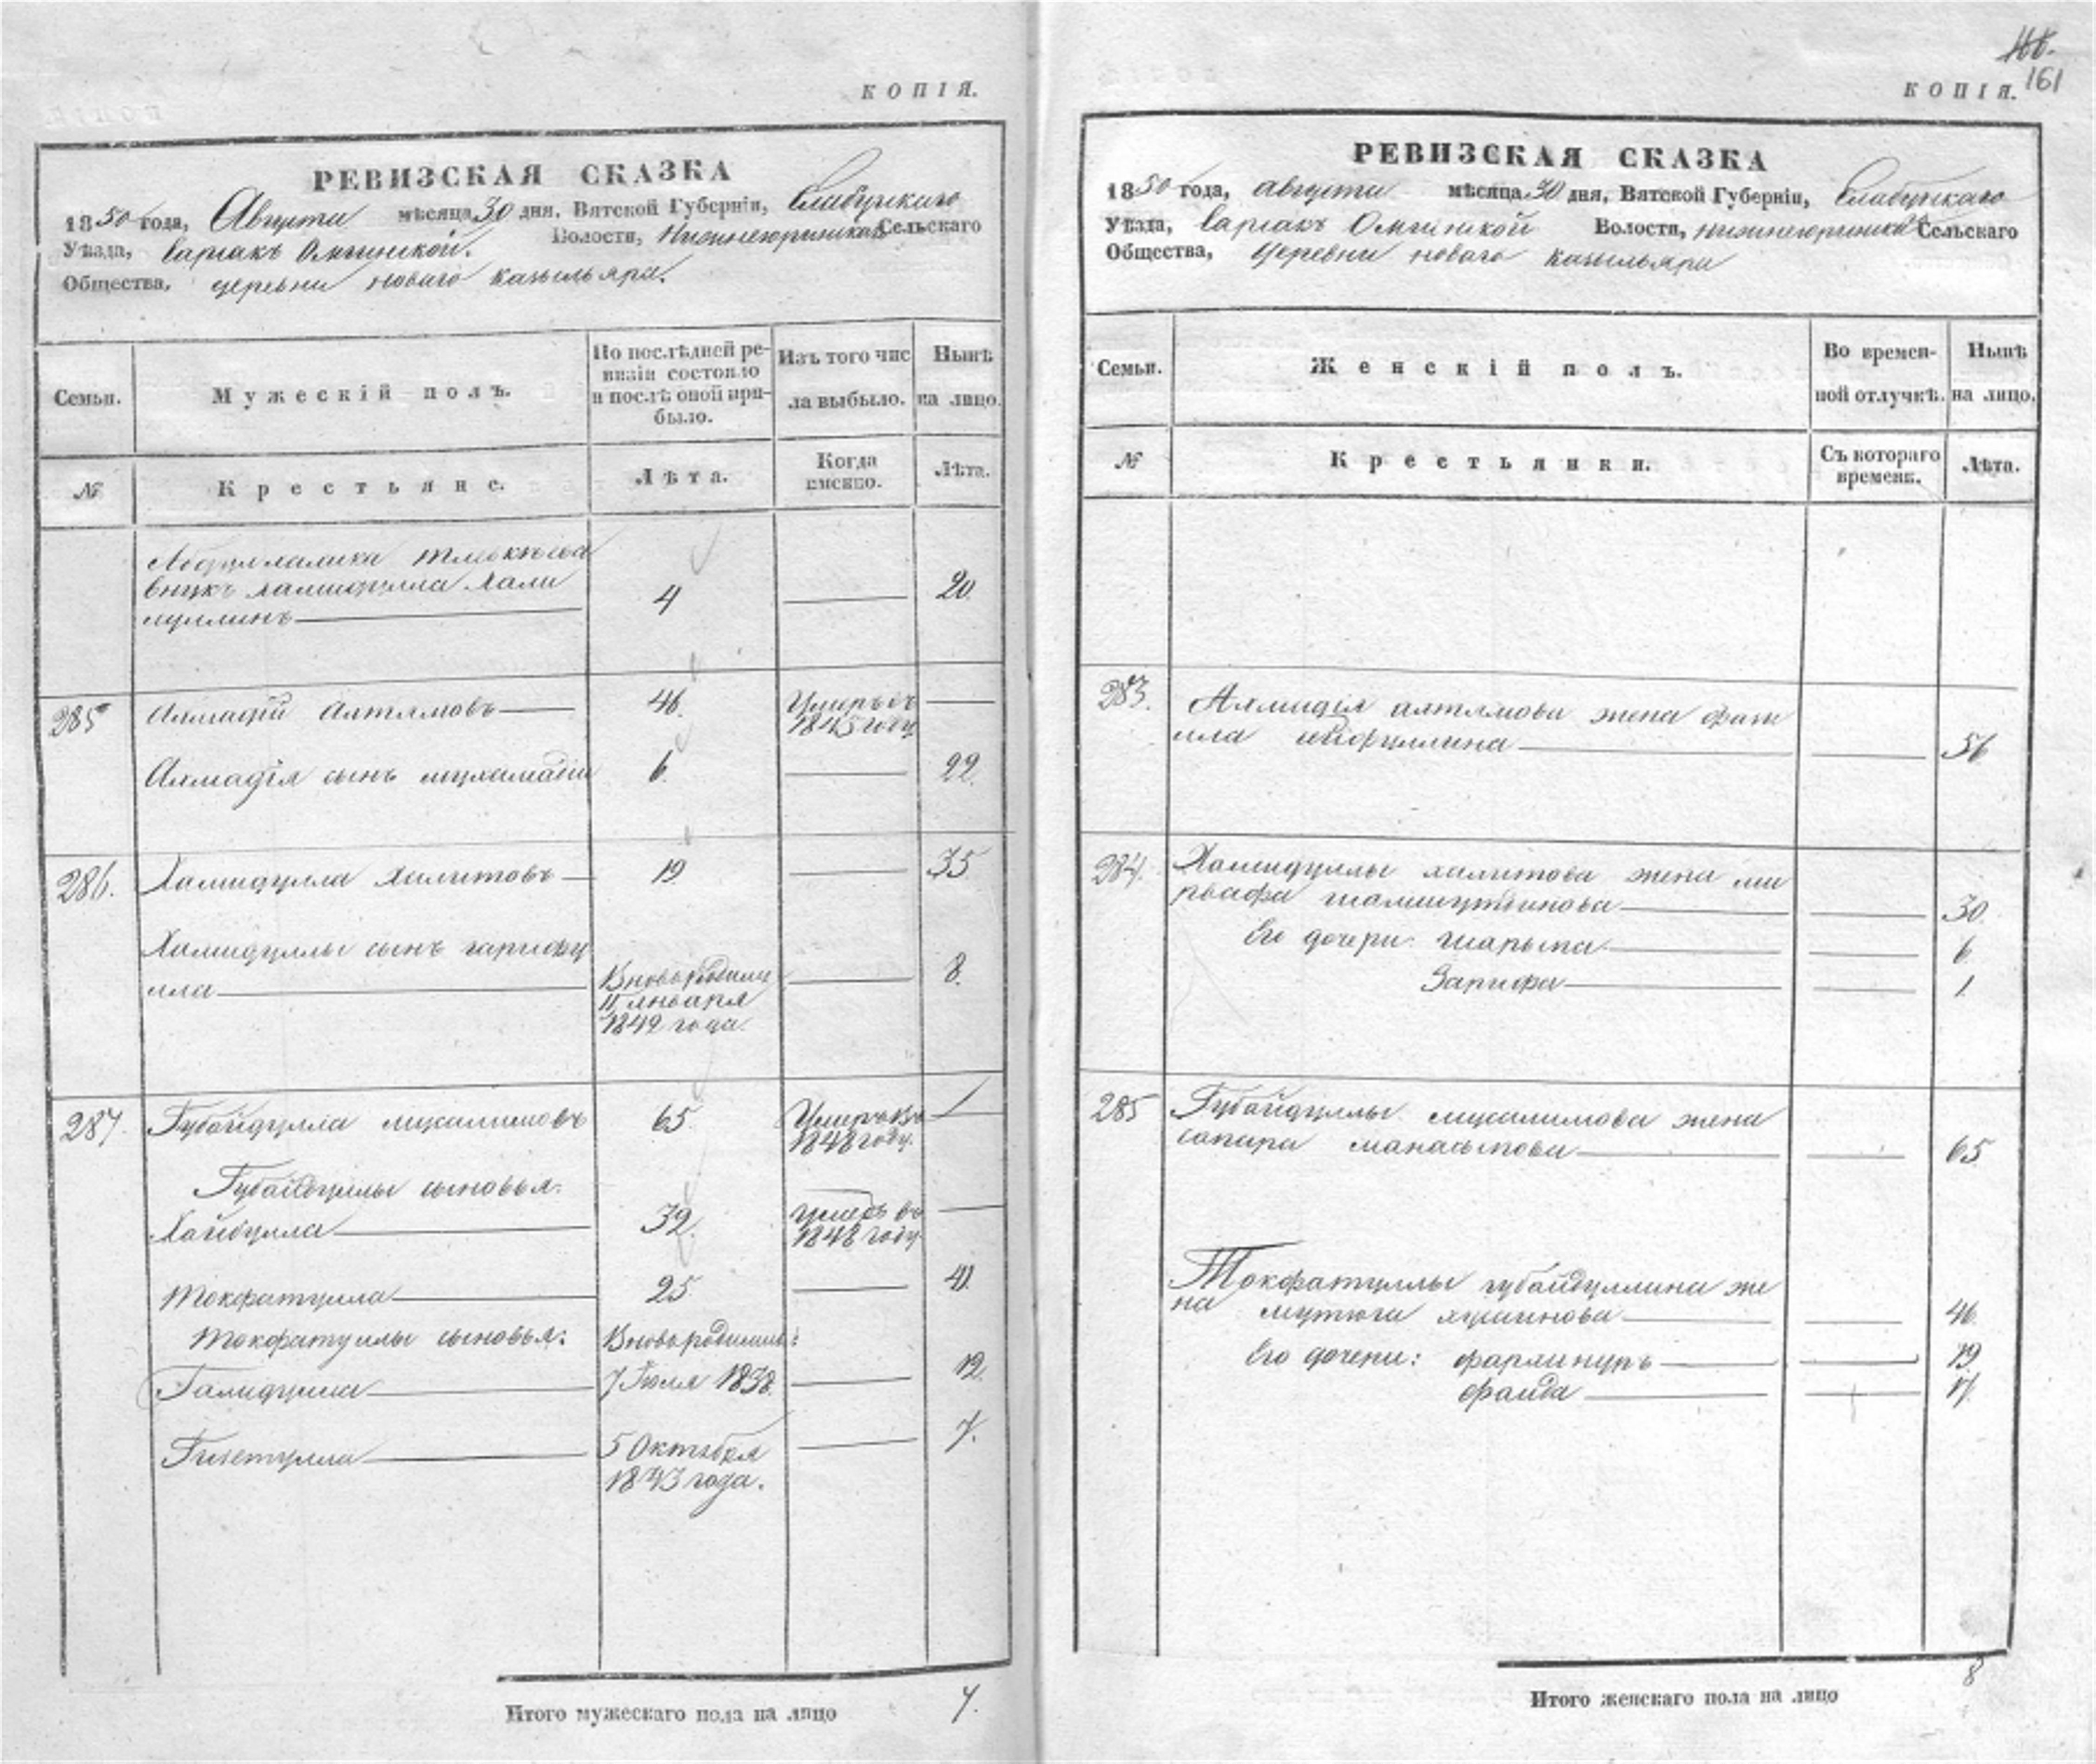 КОПІЯ.
РЕВИЗСКАЯ СКАЗКА
1850 года, Августа мѣсяца 30 дня, Вятской Губерніи, Елабужскаго
Уѣзда, Сарсакъ Омгинской. Волости, Сельскаго
Общества, деревни новаго кызылъ яра.
Семьи.
Мужескій полъ.
По послѣдней ре-
визіи состояло
и послѣ оной при-
было.
Изъ того чис
ла выбыло.
Нынѣ
на лицо.
№
Крестьяне.
Лѣта.
Когда
имѣнно.
Лѣта.
внукъ хамидулла хали
муллинъ
4
20.
285 Ахмадій Ахтямовъ 46. Умеръ въ
1845 году
Ахмадія сынъ мухамадій 6. 22.
286. Хамидулла Халитовъ 19. 35
Хамидуллы сынъ гарифу
лла Вновь родился 8.
11 января
1842 года.
287. Губайдулла муслимовъ 65. Умеръ въ
1848 году.
Губайдуллы сыновья:
Хайбулла 32. умеръ въ
1848 году
Токфатулла 25 41.
Токфатуллы сыновья: Вновь родились:
Галидулла 7 Іюля 1838. 12.
5 Октября 7.
1843 года.
Итого мужескаго пола на лицо 7.
161
КОПІЯ.
РЕВИЗСКАЯ СКАЗКА
1850 года, Августа мѣсяца 30 дня, Вятской Губерніи, Елабужскаго
Уѣзда, Сарсакъ Омгинской Волости, Сельскаго
Общества, Деревни новаго кызылъ яра
Семьи.
Женскій полъ.
Во времен-
ной отлучкѣ.
Нынѣ
на лицо.
№
Крестьянки.
Съ котораго
времени.
Лѣта.
283. Ахмадія ахтямова жена фазы
лла сейфуллина 56
284. Хамидуллы халитова жена ми
шамсутдинова 30.
Его дочери: шарыпа 6.
Зарифа 1.
285 Губайдуллы муслимова жена
сапара 65
Токфатуллы губайдуллина же
на 46.
Его дочери: 19.
фаида 17.
Итого женскаго пола на лицо 8